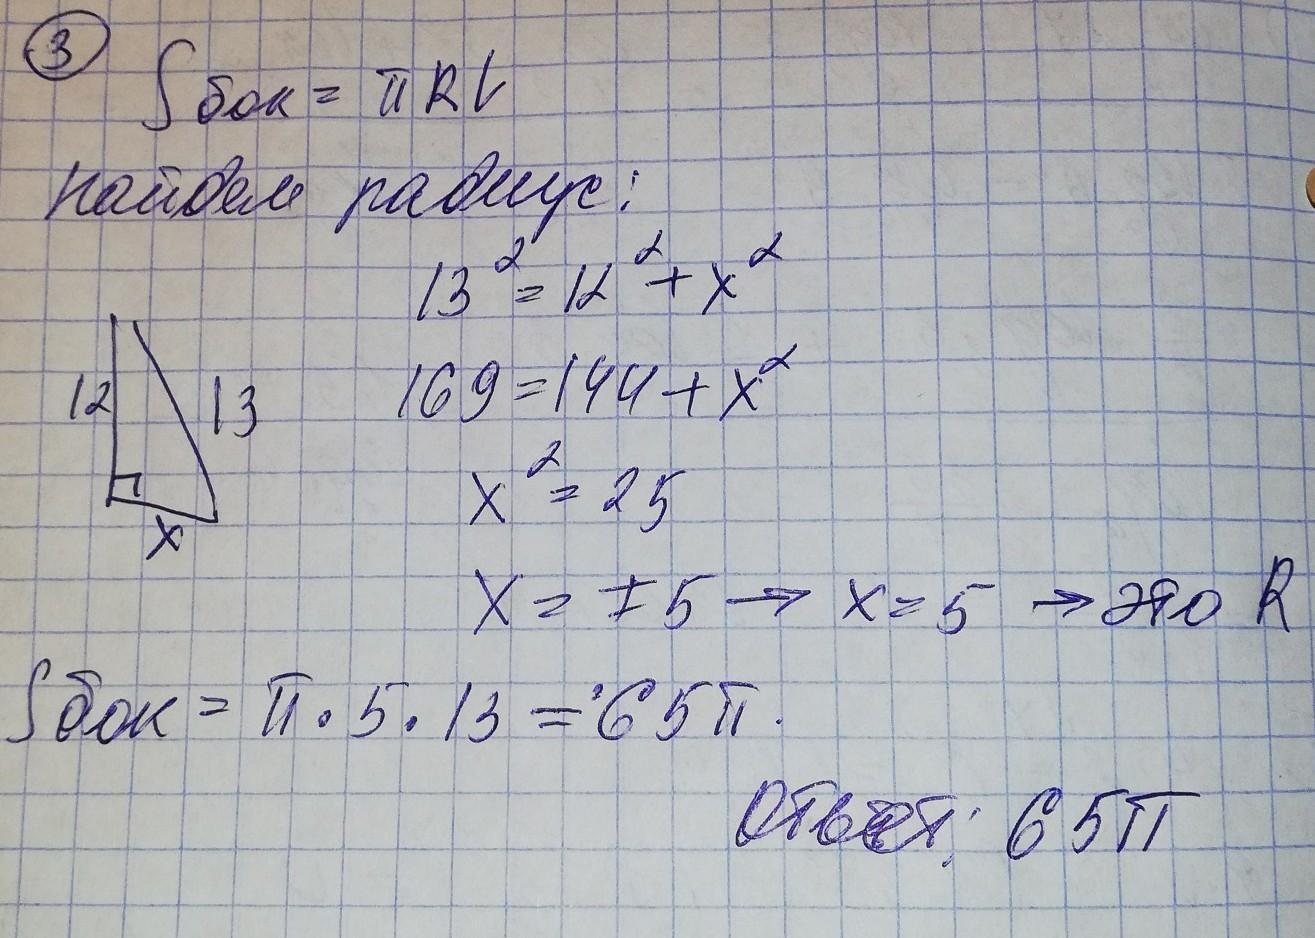 3
Sбок = πRL
найдем радиус:
13² = 12² + x²
12
13
x
169 = 144 + x²
x² = 25
x = ±5 → x = 5 → это R
Sбок = π · 5 · 13 = 65π.
Ответ: 65π